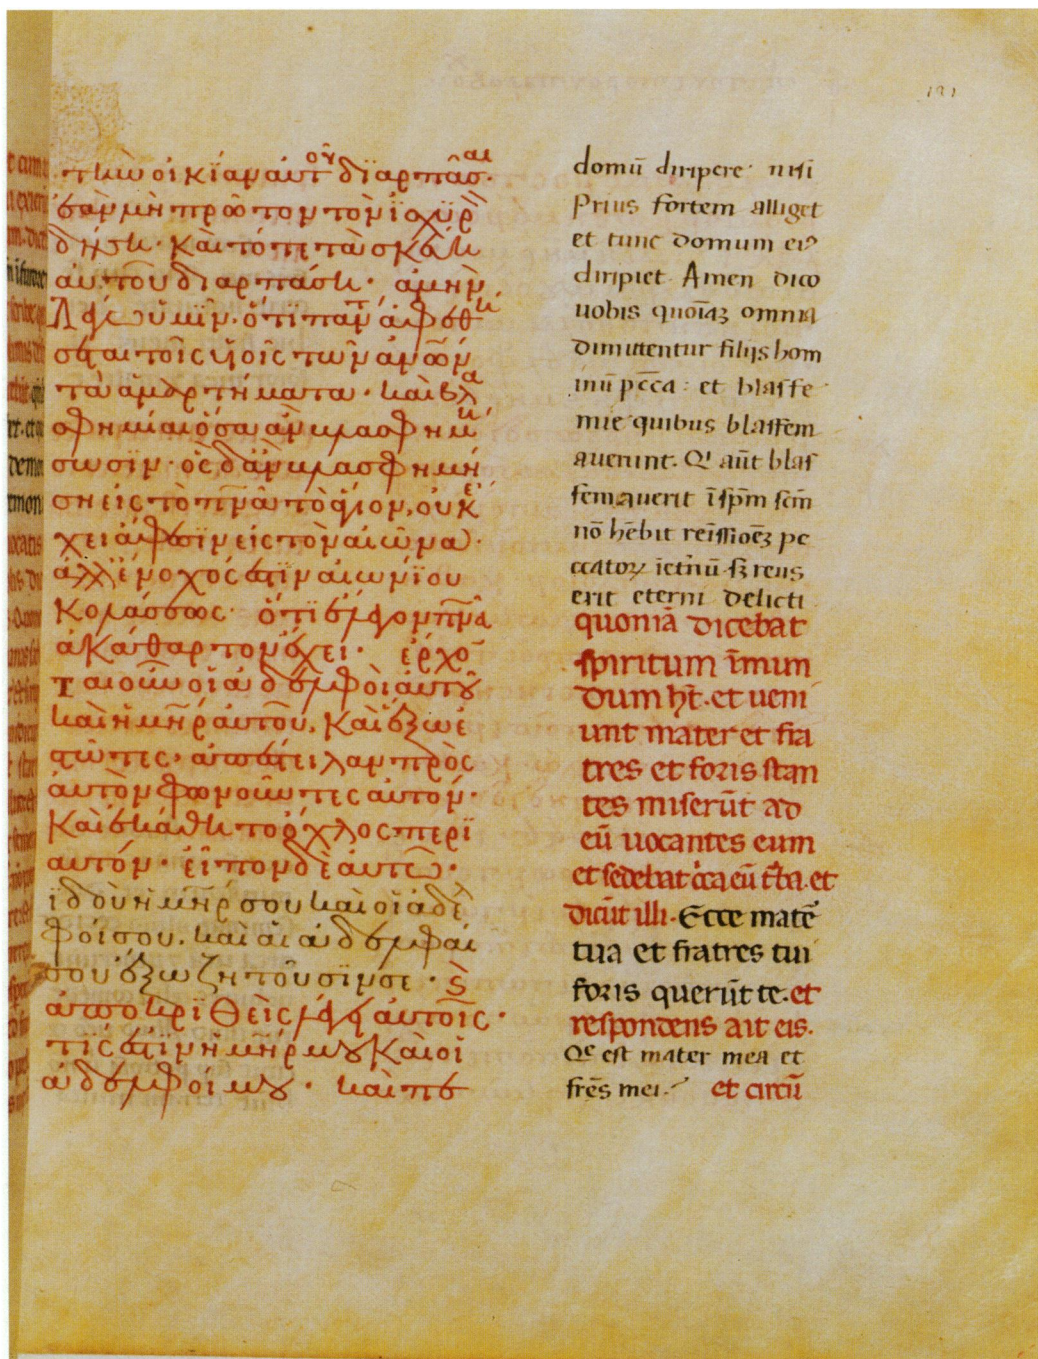 την οικίαν αὐτοῦ διαρπάσαι·
ἐὰν μὴ πρῶτον τὸν ἰσχυρὸ
δήσει· καὶ τότε τὰ σκεύει
αὐτοῦ διαρπάσει· ἀμὴν
λέγω ὑμῖν· ὅτι πάντ ἀφεθή
σεται τοῖς υἱοῖς τῶν ἀνῶν
τὰ ἁμαρτήματα· καὶ βλα
σφημίαι ὅσα ἂν βλασφημή
σωσιν· ὃς δ' ἂν βλασφημή
ση εἰς τὸ πνᾶ τὸ ἅγιον, οὐκ ἔ
χει ἄφεσιν εἰς τὸν αἰῶνα·
ἀλλ' ἔνοχός ἐστιν αἰωνίου
κολάσεως· ὅτι ἔλεγον πνᾶ
ἀκάθαρτον ἔχει· ἔρχο
ται οὖν οἱ ἀδελφοὶ αὐτοῦ
καὶ ἡ μηρ αὐτοῦ, καὶ ἔξω ἑ
στῶτες· ἀπέστειλαν πρὸς
αὐτὸν φωνοῦντες αὐτόν·
καὶ ἐκάθητο ὄχλος περὶ
αὐτόν· εἶπον δὲ αὐτῶ·
ἰδοὺ ἡ μηρ σου καὶ οἱ ἀδελ
φοί σου. καὶ αἱ ἀδελφαί
σου ἔξω ζητοῦσίν σε· ϗ
ἀποκριθεὶς λέγει αὐτοῖς·
τίς ἐστιν ἡ μηρ μου καὶ οἱ
ἀδελφοί μου· καὶ πε
131
domū diripere nisi
prius fortem alliget
et tunc domum eiꝰ
diripiet Amen dico
uobis quoniāꝫ omnia
dimittentur filijs hom
inū pcc̄a: et blasfe
mie quibus blasfem
auerunt. Qͥ aūt blas
femauerit ī spm̄ scm̄
nō hēbit remissioēꝫ pe
ccatoꝝ ī et̄nū sꝫ reus
erit eterni delicti
quoniā dicebat
spiritum īmun
dum hꝫt. et ueni
unt mater et fra
tres et foris stan
tes miserūt ad
eū uocantes eum
et sedebat cͥca eū tͬba. et
dicūt illi. Ecce mater
tua et fratres tui
foris querūt te. et
respondens ait eis.
Qͤ est mater mea et
frēs mei? et circū